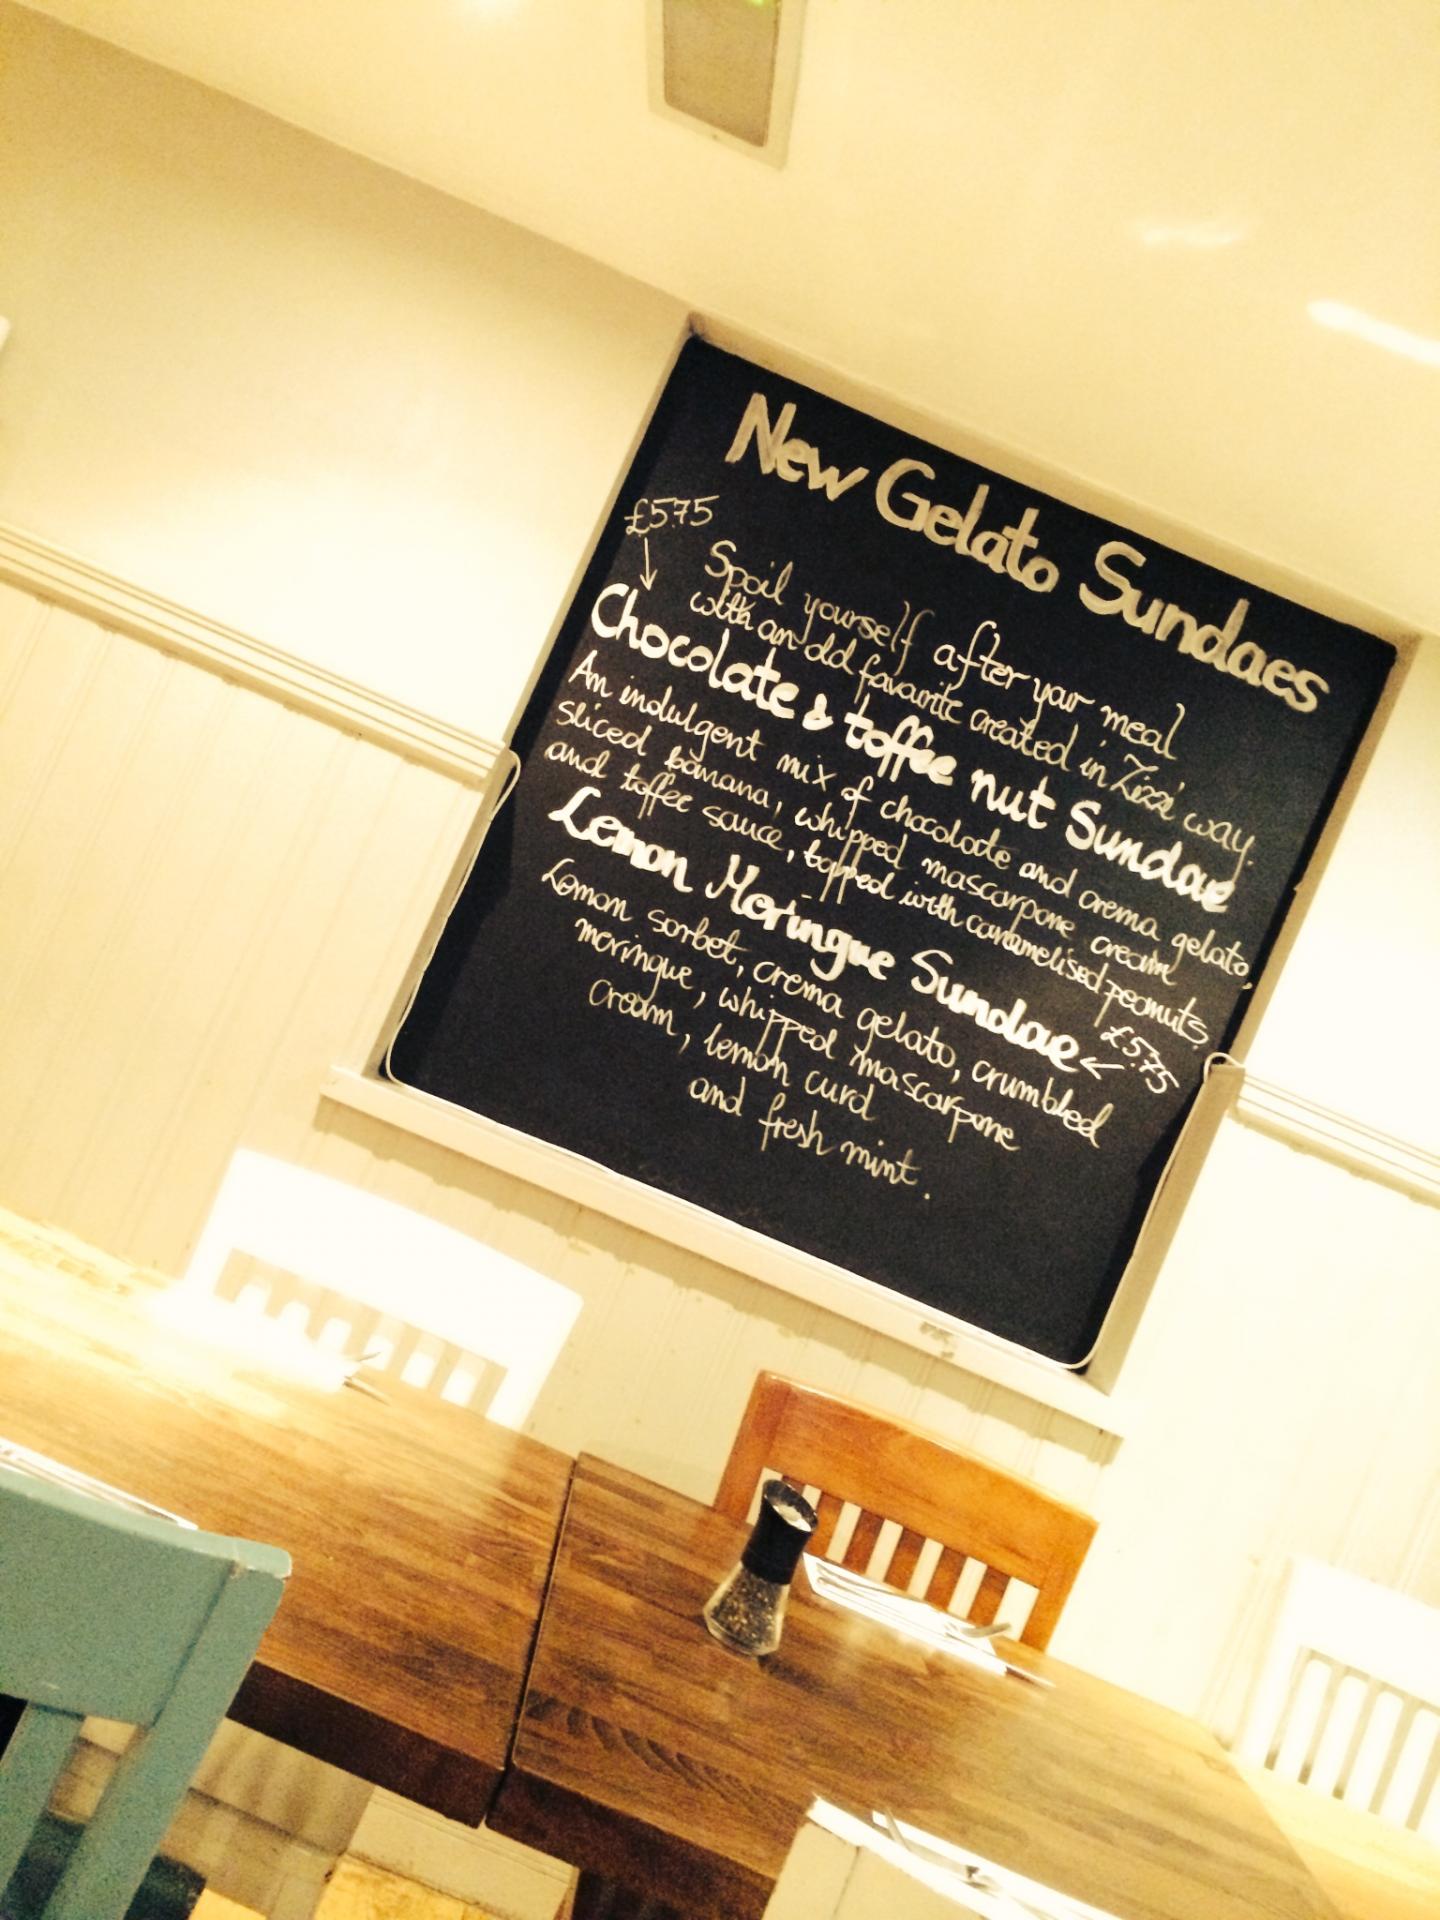 New Gelato Sundaes
£5.75
Spoil yourself after your meal
with an old favourite created in Zizzi way.
Chocolate & toffee nut Sundae
An indulgent mix of chocolate and crema gelato,
sliced banana, whipped mascarpone cream
and toffee sauce, topped with caramelised peanuts
Lemon Meringue Sundae £5.75
Lemon sorbet, crema gelato, crumbled
meringue, whipped mascarpone
cream, lemon curd
and fresh mint.